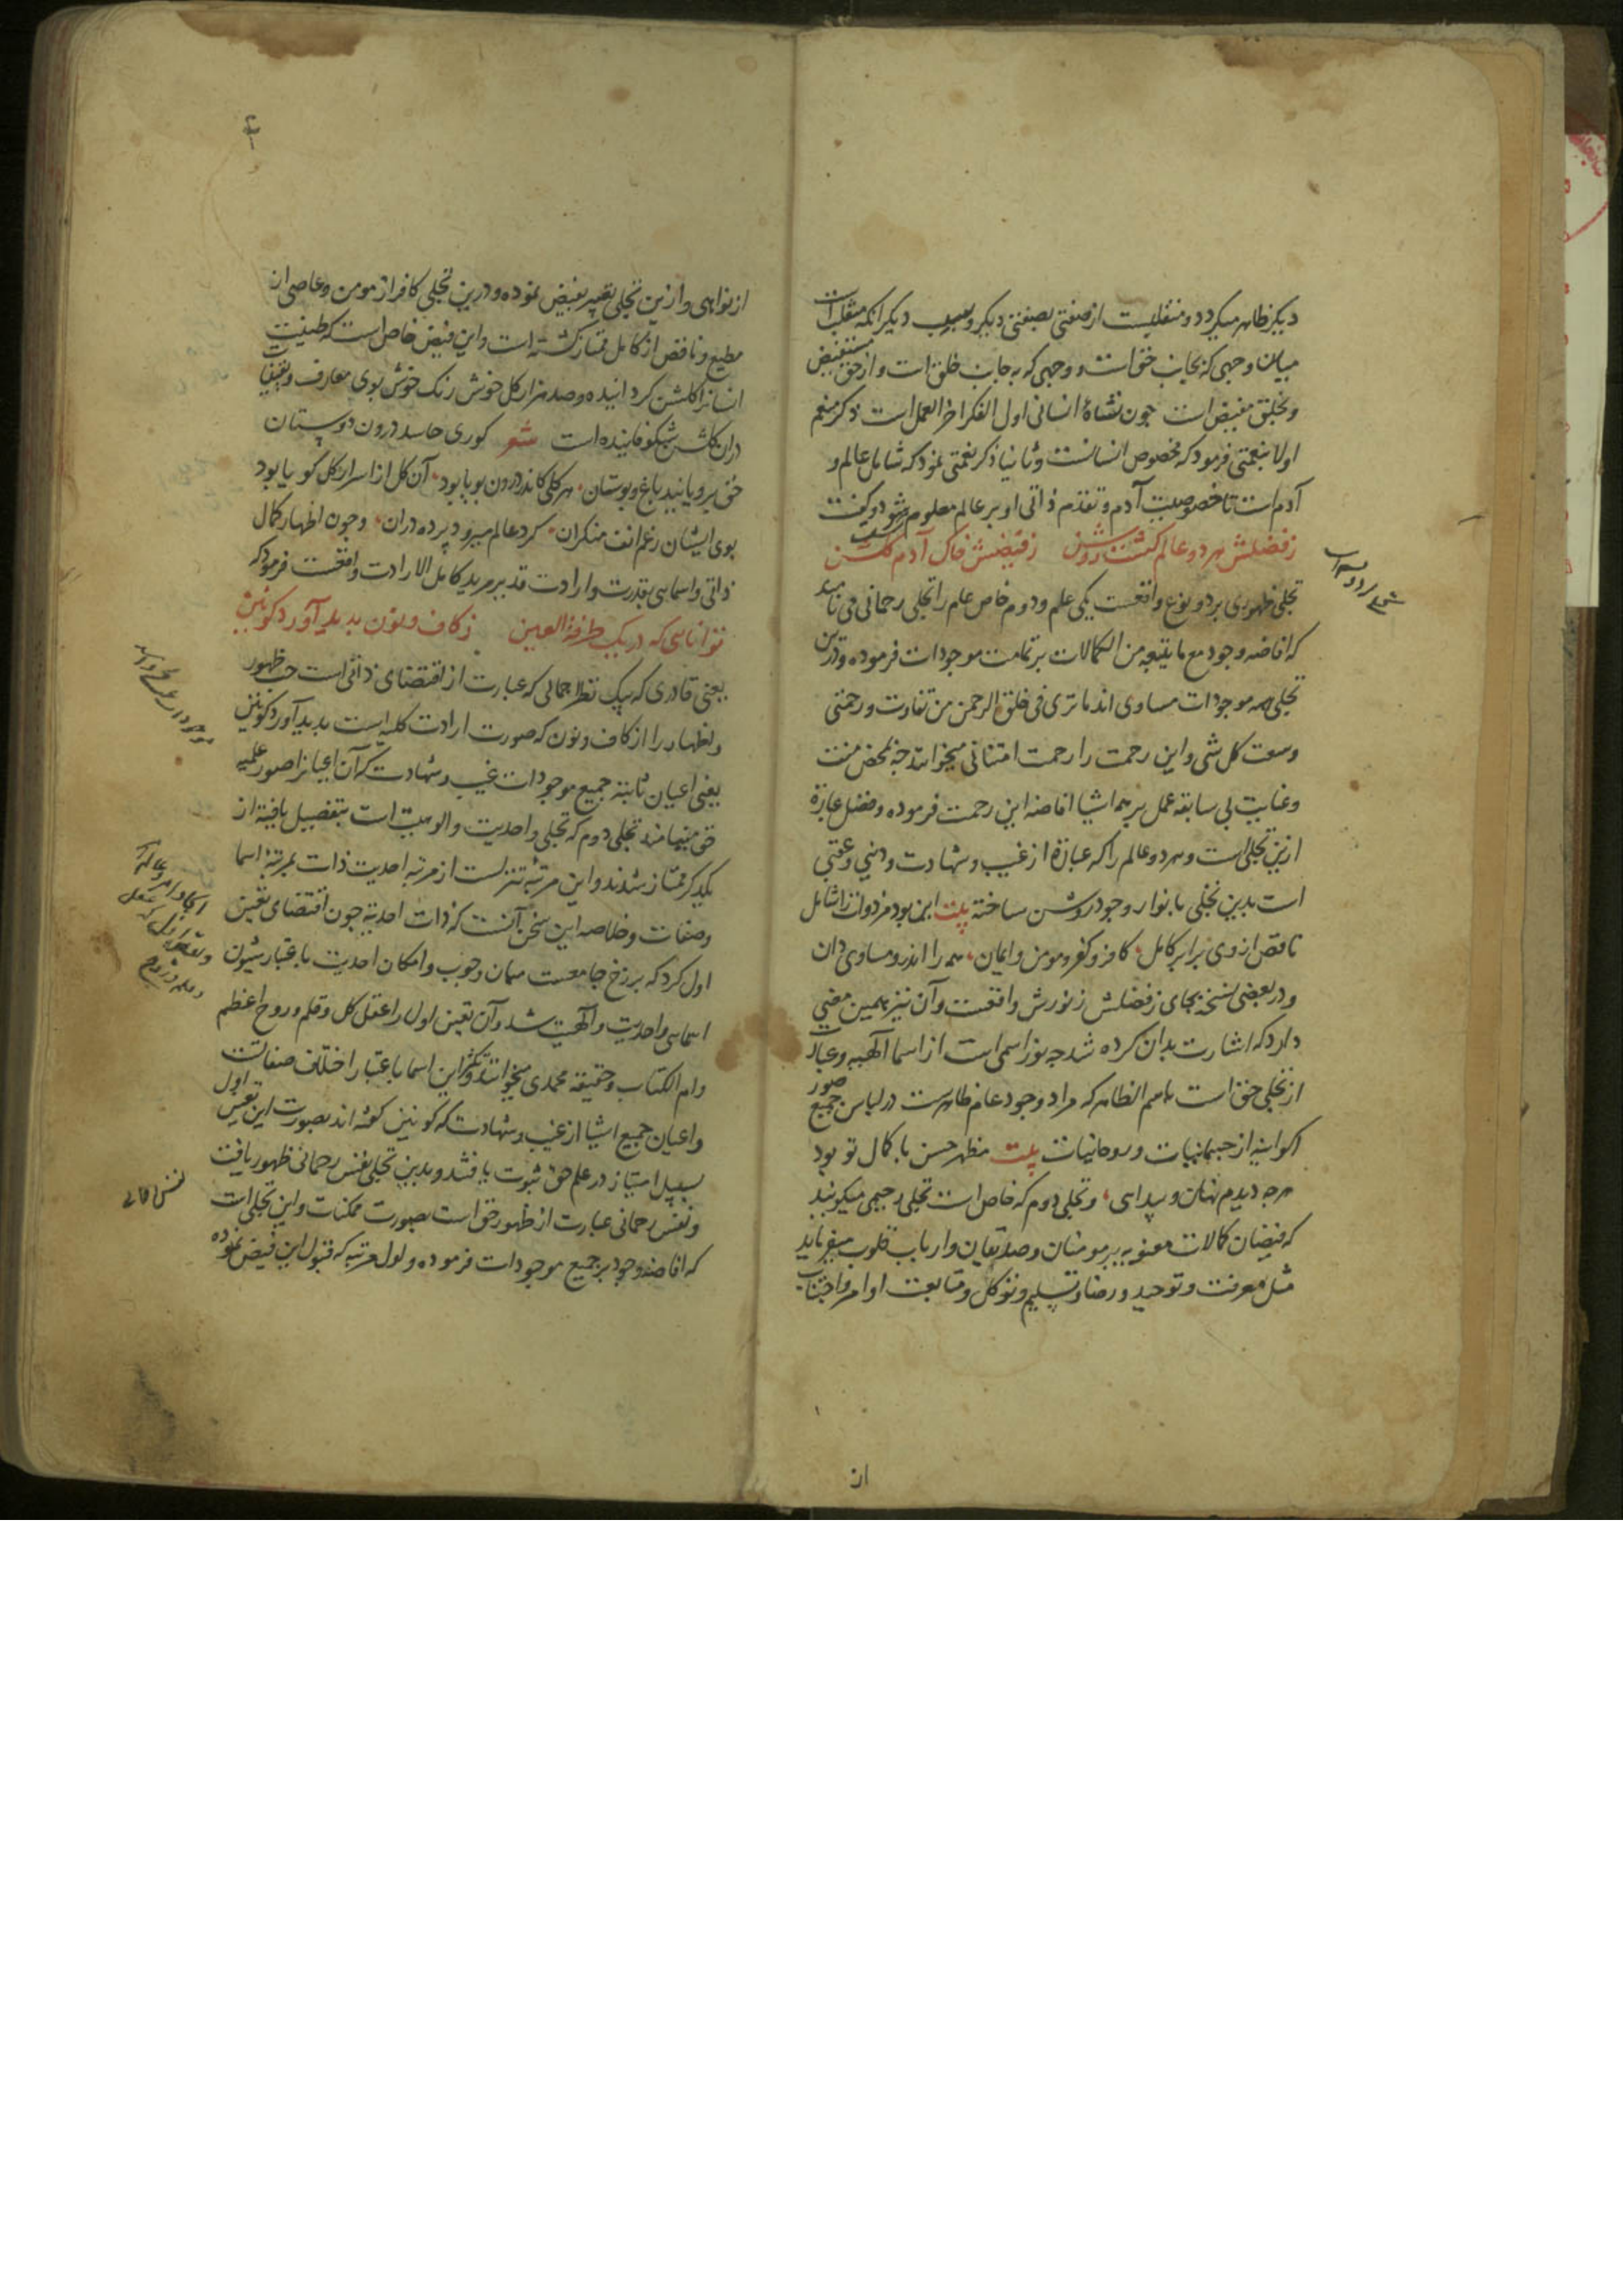 دیکر ظاهر میکردد و منقلبست از صفتی بصفتی دیکر و بسبب دیکر آنکه متقلب است
میان وجهی که بجانب حق است و وجهی که بجانب خلق است و از حق مستفیض
و بخلق مفیض است چون نشاهٔ انسانی اول الفکر آخر العمل است ذکر منعم
اولا بنعمتی فرمود که مخصوص انسانست و ثانیا ذکر نعمتی نمود که شامل عالم و
آدم است تا خصوصیت آدم و تقدم ذاتی او بر عالم معلوم شود و گفت
ز فضلش هر دو عالم کشت روشن ز فیضش خاک آدم کشت کلشن
تجلی ظهوری بر دو نوع واقعست یکی عام و دوم خاص عام را تجلی رحمانی می نامند
که افاضه وجود مع ما یتبعه من الکمالات بر تمامت موجودات فرموده و درین
تجلی همه موجودات مساوی اند ما تری فی خلق الرحمن من تفاوت و رحمتی
وسعت کل شی و این رحمت را رحمت امتنانی میخوانند چه بمحض منت
و عنایت بی سابقه عمل بر همه اشیا افاضه این رحمت فرموده و فضل عبارة
ازین تجلی است و هر دو عالم را که عبارة از غیب و شهادت و دنیی و عقبی
است بدین تجلی بانوار وجود روشن ساخته بیت این بود مر ذوات را شامل
ناقص از وی برابر کامل کافر و کفر و مومن و ایمان همه را اندرو مساوی دان
و در بعضی نسخه بجای ز فضلش ز نورش واقعست و آن نیز همین معنی
دارد که اشارت بدان کرده شد چه نور اسمی است از اسما الهیه و عبارت
از تجلی حق است باسم الظاهر که مراد وجود عام ظاهرست در لباس جمیع صور
اکوانیه از جسمانیات و روحانیات بیت مظهر حسن با کمال تو بود
هرچه دیدم نهان و پیدایی و تجلی دوم که خاص است تجلی رحیمی میکویند
که فیضان کمالات معنویه بر مومنان و صدیقان و ارباب قلوب میفرماید
مثل معرفت و توحید و رضا و تسلیم و توکل و متابعت اوامر و اجتناب
از
از نواهی و ازین تجلی تعبیر بفیض نموده و درین تجلی کافر از مومن و عاصی از
مطیع و ناقص از کامل ممتاز کشته است و این فیض خاص است که طینت
انسانرا کلشن کردانیده و صد هزار کل خوش رنک خوش بوی معارف و یقینیات
دران کلشن شکوفانیده است شعر کوری حاسد درون دوستان
حق برویانید باغ و بوستان هر کلی کاندر درون بویا بود آن کل از اسرار کل کویا بود
بوی ایشان رغم انف منکران کرد عالم میرود پرده دران و چون اظهار کمال
ذاتی و اسمایی بقدرت و ارادت قدیر مرید کامل الارادت واقعست فرمود که
توانایی که در یک طرفة العین ز کاف و نون پدید آورد کونین
یعنی قادری که بیک نظر اجمالی که عبارت از اقتضای ذاتی است حب ظهور
و اظهار را از کاف و نون که صورت ارادت کلیه است پدید آورد کونین
یعنی اعیان ثابته جمیع موجودات غیب و شهادت که آن اعیانرا صور علمیه
حق مینامند تجلی دوم که تجلی واحدیت و الوهیت است بتفصیل یافته از
یکدیکر ممتاز شدند و این مرتبه تنزلست از مرتبه احدیت ذات بمرتبه اسما
و صفات و خلاصه این سخن آنست که ذات احدیة چون اقتضای تعین
اول کرد که برزخ جامعست میان وجوب و امکان احدیت باعتبار شیون
اسمایی واحدیت و الهیت شد و آن تعین اول را عقل کل و قلم و روح اعظم
و ام الکتاب و حقیقه محمدی میخوانند و تکثر این اسما باعتبار اختلاف صفاتست
و اعیان جمیع اشیا از غیب و شهادت که کونین کفته اند بصورت این تعین اول
بسبیل امتیاز در علم حق ثبوت یافتند و بدین تجلی نفس رحمانی ظهور یافت
و نفس رحمانی عبارت از ظهور حق است بصورت ممکنات و این تجلی است
که افاضه وجود بر جمیع موجودات فرموده و اول مرتبه که قبول این فیض نموده